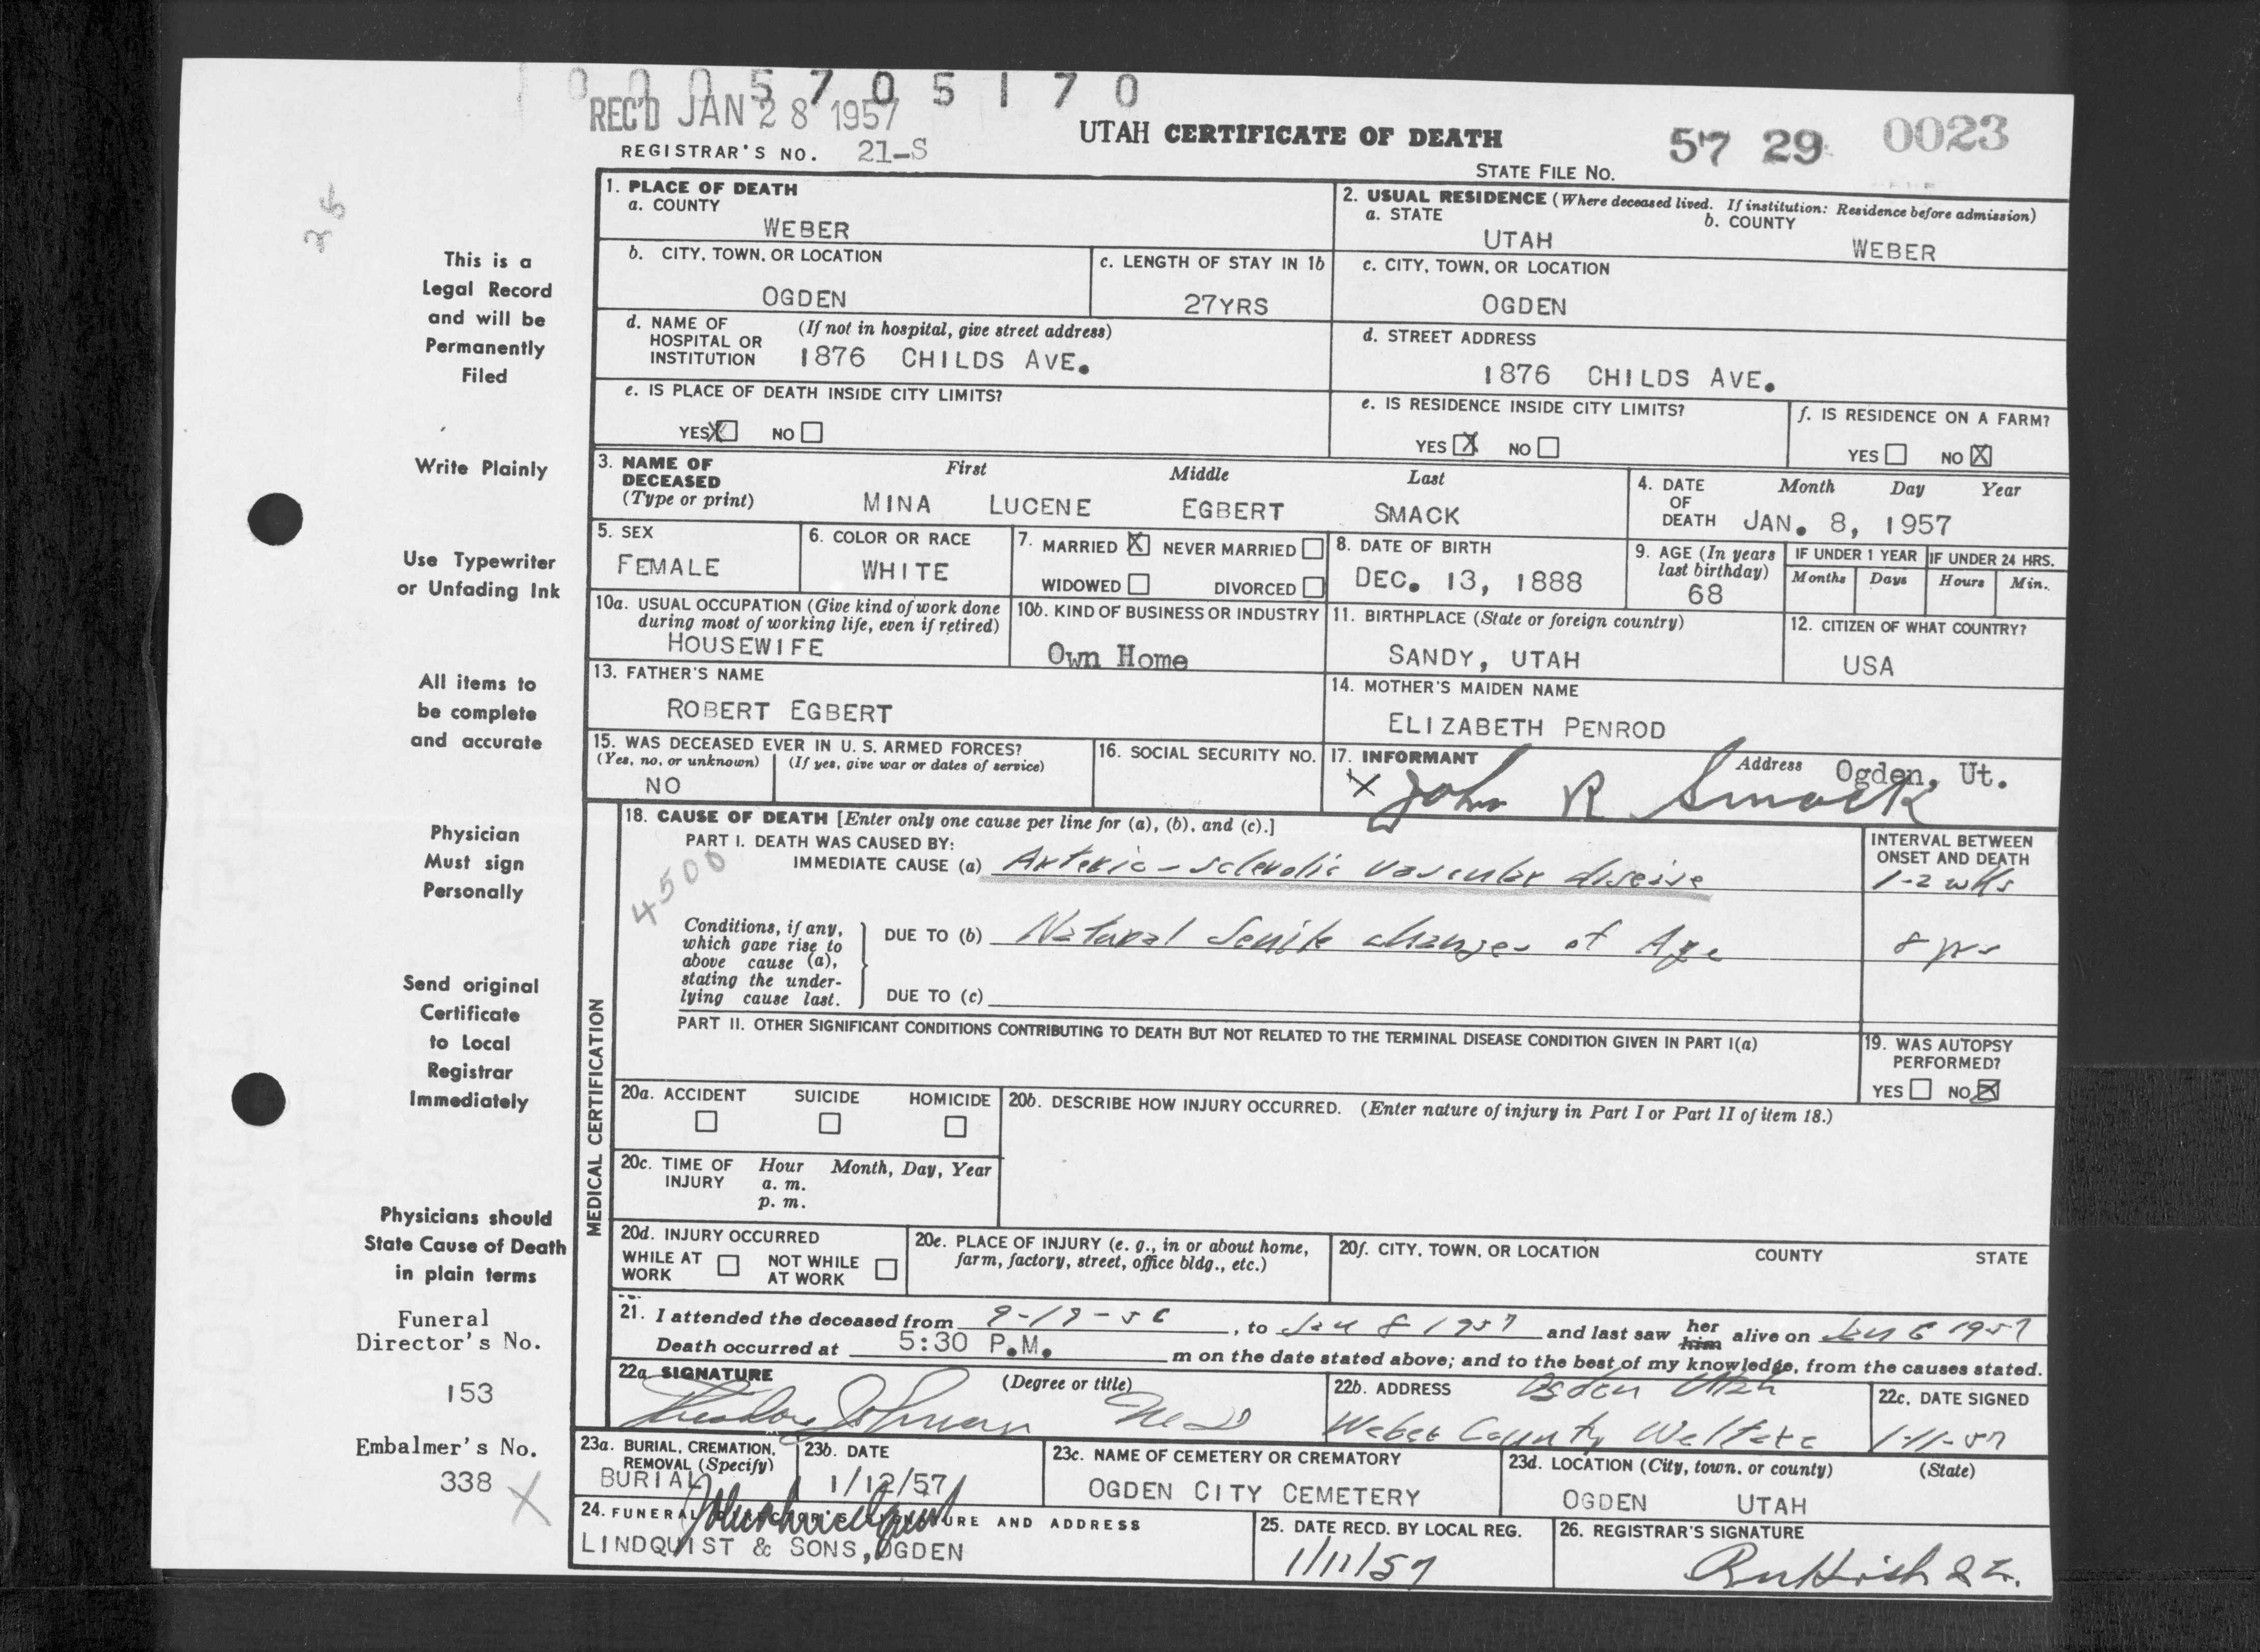 0005705170
REC'D JAN 28 1957
UTAH CERTIFICATE OF DEATH
57 29 0023
REGISTRAR'S NO. 21-S
STATE FILE NO.
26
This is a
Legal Record
and will be
Permanently
Filed
Write Plainly
Use Typewriter
or Unfading Ink
All items to
be complete
and accurate
Physician
Must sign
Personally
Send original
Certificate
to Local
Registrar
Immediately
Physicians should
State Cause of Death
in plain terms
Funeral
Director's No.
153
Embalmer's No.
338 X
1. PLACE OF DEATH
a. COUNTY
WEBER
2. USUAL RESIDENCE (Where deceased lived. If institution: Residence before admission)
a. STATE b. COUNTY
UTAH WEBER
b. CITY, TOWN, OR LOCATION
OGDEN
c. LENGTH OF STAY IN 1b
27YRS
c. CITY, TOWN, OR LOCATION
OGDEN
d. NAME OF (If not in hospital, give street address)
HOSPITAL OR
INSTITUTION 1876 CHILDS AVE.
d. STREET ADDRESS
1876 CHILDS AVE.
e. IS PLACE OF DEATH INSIDE CITY LIMITS?
YES X NO
e. IS RESIDENCE INSIDE CITY LIMITS?
YES X NO
f. IS RESIDENCE ON A FARM?
YES NO X
3. NAME OF First Middle Last
DECEASED
(Type or print) MINA LUCENE EGBERT SMACK
4. DATE Month Day Year
OF
DEATH JAN. 8, 1957
5. SEX
FEMALE
6. COLOR OR RACE
WHITE
7. MARRIED X NEVER MARRIED
WIDOWED DIVORCED
8. DATE OF BIRTH
DEC. 13, 1888
9. AGE (In years
last birthday)
68
IF UNDER 1 YEAR IF UNDER 24 HRS.
Months Days Hours Min.
10a. USUAL OCCUPATION (Give kind of work done
during most of working life, even if retired)
HOUSEWIFE
10b. KIND OF BUSINESS OR INDUSTRY
Own Home
11. BIRTHPLACE (State or foreign country)
SANDY, UTAH
12. CITIZEN OF WHAT COUNTRY?
USA
13. FATHER'S NAME
ROBERT EGBERT
14. MOTHER'S MAIDEN NAME
ELIZABETH PENROD
15. WAS DECEASED EVER IN U. S. ARMED FORCES?
(Yes, no, or unknown) (If yes, give war or dates of service)
NO
16. SOCIAL SECURITY NO.
17. INFORMANT Address Ogden, Ut.
X John R Smack
MEDICAL CERTIFICATION
18. CAUSE OF DEATH [Enter only one cause per line for (a), (b), and (c).]
PART I. DEATH WAS CAUSED BY:
IMMEDIATE CAUSE (a) Arterio-sclerotic vascular disease
4500
INTERVAL BETWEEN
ONSET AND DEATH
1-2 wks
Conditions, if any,
which gave rise to
above cause (a),
stating the under-
lying cause last.
DUE TO (b) Natural Senile changes of Age
8 yrs
DUE TO (c)
PART II. OTHER SIGNIFICANT CONDITIONS CONTRIBUTING TO DEATH BUT NOT RELATED TO THE TERMINAL DISEASE CONDITION GIVEN IN PART I(a)
19. WAS AUTOPSY
PERFORMED?
YES NO X
20a. ACCIDENT SUICIDE HOMICIDE
20b. DESCRIBE HOW INJURY OCCURRED. (Enter nature of injury in Part I or Part II of item 18.)
20c. TIME OF Hour Month, Day, Year
INJURY a. m.
p. m.
20d. INJURY OCCURRED
WHILE AT NOT WHILE
WORK AT WORK
20e. PLACE OF INJURY (e. g., in or about home,
farm, factory, street, office bldg., etc.)
20f. CITY, TOWN, OR LOCATION COUNTY STATE
21. I attended the deceased from 9-19-56, to Jan 8 1957 and last saw her him alive on Jan 6 1957
Death occurred at 5:30 P.M. m on the date stated above; and to the best of my knowledge, from the causes stated.
22a. SIGNATURE (Degree or title)
Theodore Johnson MD
22b. ADDRESS Ogden Utah
Weber County Welfare
22c. DATE SIGNED
1-11-57
23a. BURIAL, CREMATION,
REMOVAL (Specify)
BURIAL
23b. DATE
1/12/57
23c. NAME OF CEMETERY OR CREMATORY
OGDEN CITY CEMETERY
23d. LOCATION (City, town, or county) (State)
OGDEN UTAH
24. FUNERAL DIRECTOR'S SIGNATURE AND ADDRESS
LINDQUIST & SONS, OGDEN
25. DATE RECD. BY LOCAL REG.
1/11/57
26. REGISTRAR'S SIGNATURE